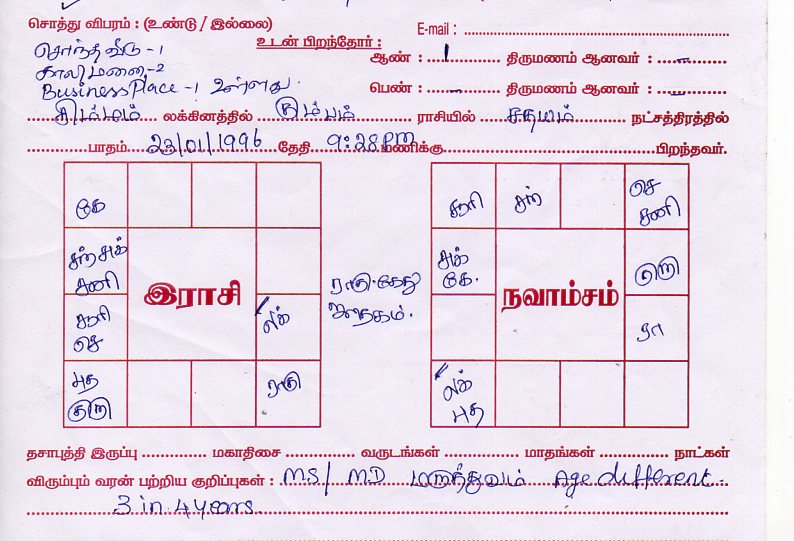 சொத்து விபரம் : (உண்டு / இல்லை)
E-mail :
சொந்த வீடு - 1
உடன் பிறந்தோர் :
ஆண் : 1 திருமணம் ஆனவர் : -
காலிமனை - 2
Business Place - 1 உள்ளது.
பெண் : - திருமணம் ஆனவர் : -
சிம்மம் லக்கினத்தில் கும்பம் ராசியில் சதயம் நட்சத்திரத்தில்
பாதம் 23/01/1996 தேதி 9:28 PM மணிக்கு பிறந்தவர்.
கே
சந் சுக்
சனி
சூரி
செ
புத
குரு
இராசி
லக்
ராகு
ராகு-கேது
ஜாதகம்.
சூரி
சந்
செ
சனி
சுக்
கே.
நவாம்சம்
குரு
ரா
லக்
புத
தசாபுத்தி இருப்பு மகாதிசை வருடங்கள் மாதங்கள் நாட்கள்
விரும்பும் வரன் பற்றிய குறிப்புகள் : MS / MD மருத்துவம் Age different.
3 in 4 years